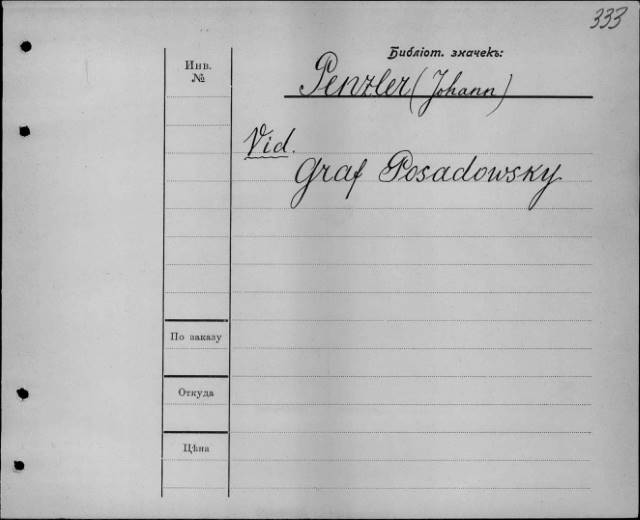 333
Библіот. значекъ:
Инв.
№
Penzler (Johann)
Vid.
Graf Posadowsky
По заказу
Откуда
Цѣна